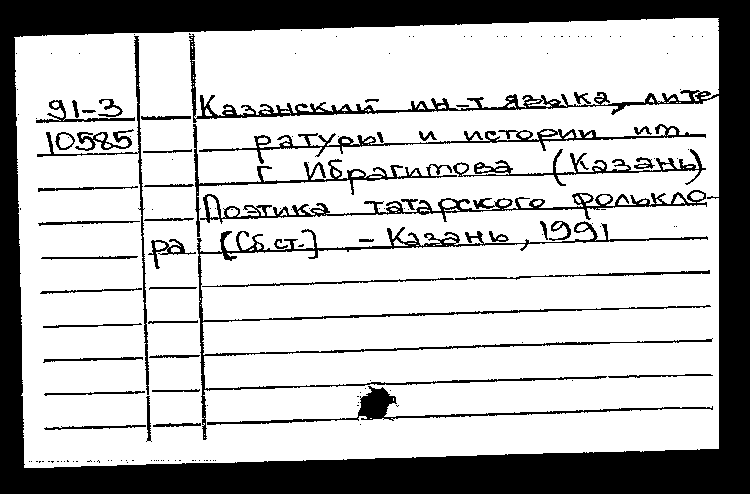 91-3 Казанский ин-т языка, лите-
10585 ратуры и истории им.
Г Ибрагимова (Казань)
Поэтика татарского фолькло-
ра [Сб.ст.] - Казань, 1991